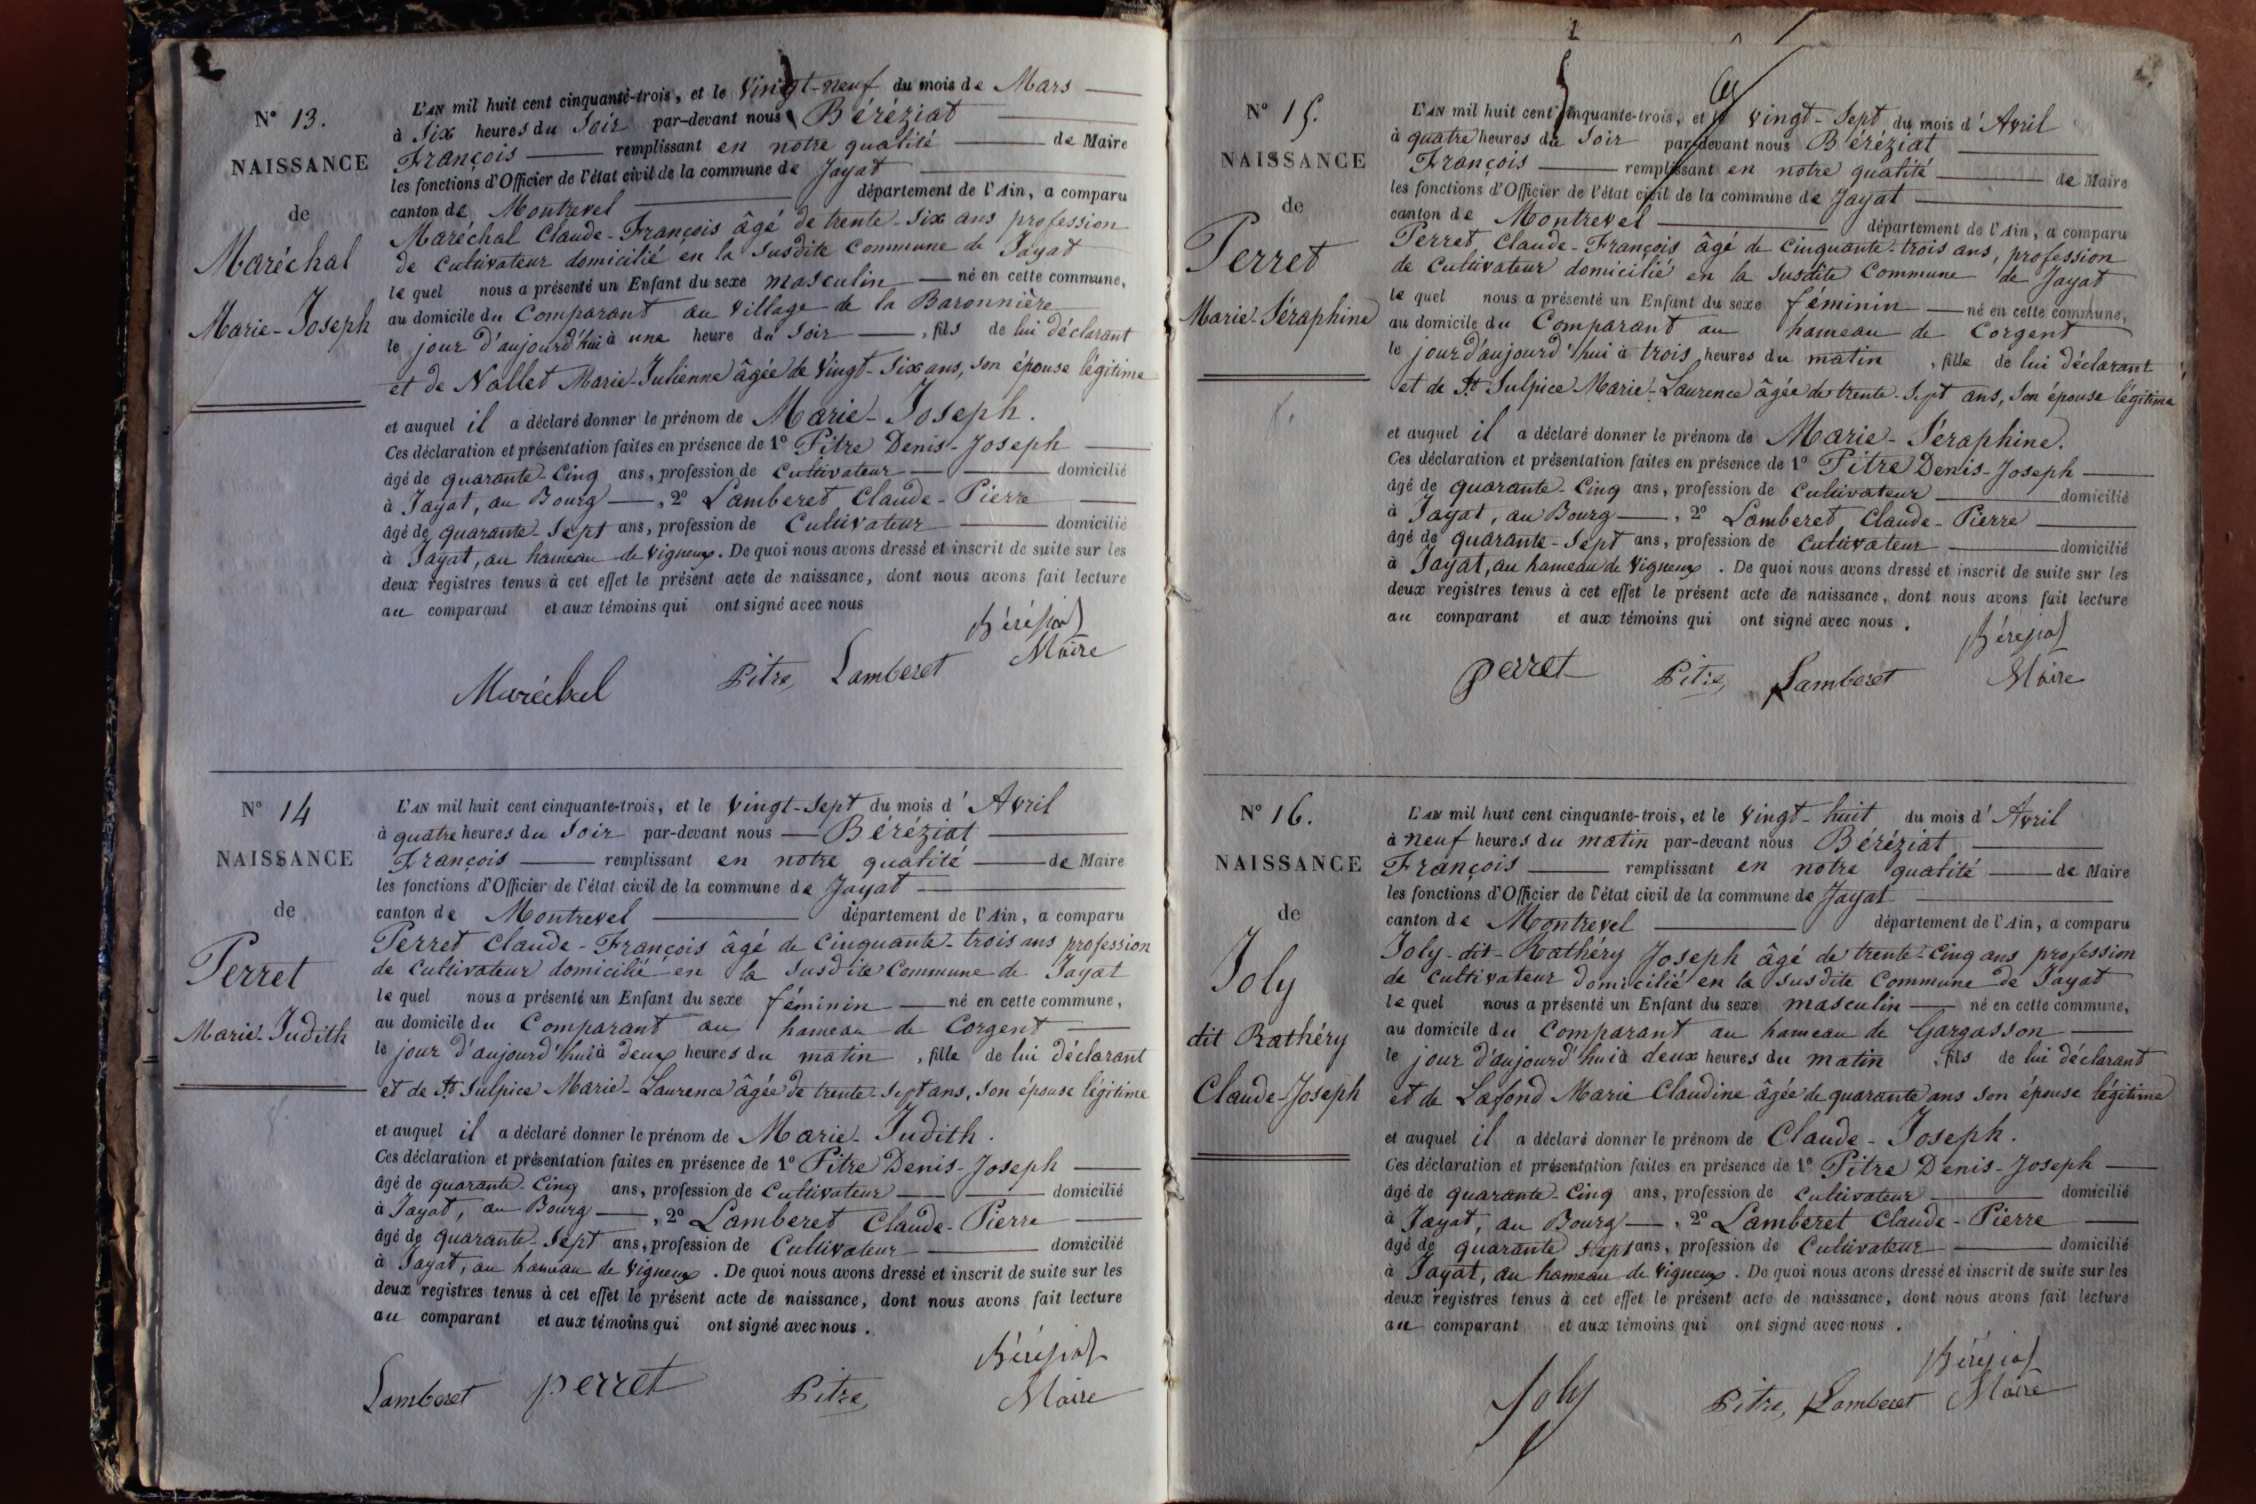 N° 13.
NAISSANCE
de
Maréchal
Marie-Joseph
L'AN mil huit cent cinquante-trois, et le Vingt-neuf du mois de Mars
à Six heures du Soir par-devant nous Béréziat
François remplissant en notre qualité de Maire
les fonctions d'Officier de l'état civil de la commune de Jayat
canton de Montrevel département de l'Ain, a comparu
Maréchal Claude-François âgé de trente-six ans profession
de Cultivateur domicilié en la susdite Commune de Jayat
lequel nous a présenté un Enfant du sexe masculin né en cette commune,
au domicile du Comparant au Village de la Baronnière
le jour d'aujourd'hui à une heure du Soir, fils de lui déclarant
et de Nallet Marie-Julienne âgée de Vingt-Six ans, Son épouse légitime
et auquel il a déclaré donner le prénom de Marie-Joseph.
Ces déclaration et présentation faites en présence de 1° Pitre Denis-Joseph
âgé de quarante-Cinq ans, profession de Cultivateur domicilié
à Jayat, au Bourg, 2° Lamberet Claude-Pierre
âgé de quarante-Sept ans, profession de Cultivateur domicilié
à Jayat, au hameau de Vigneux. De quoi nous avons dressé et inscrit de suite sur les
deux registres tenus à cet effet le présent acte de naissance, dont nous avons fait lecture
au comparant et aux témoins qui ont signé avec nous
Maréchal Pitre, Lamberet Béréziat
Maire
N° 14
NAISSANCE
de
Perret
Marie-Judith
L'AN mil huit cent cinquante-trois, et le Vingt-Sept du mois d'Avril
à quatre heures du Soir par-devant nous Béréziat
François remplissant en notre qualité de Maire
les fonctions d'Officier de l'état civil de la commune de Jayat
canton de Montrevel département de l'Ain, a comparu
Perret Claude-François âgé de Cinquante-trois ans profession
de Cultivateur domicilié en la Susdite Commune de Jayat
lequel nous a présenté un Enfant du sexe féminin né en cette commune,
au domicile du Comparant au hameau de Corgent
le jour d'aujourd'hui à deux heures du matin, fille de lui déclarant
et de St Sulpice Marie-Laurence âgée de trente-Sept ans, Son épouse légitime
et auquel il a déclaré donner le prénom de Marie-Judith.
Ces déclaration et présentation faites en présence de 1° Pitre Denis-Joseph
âgé de quarante-Cinq ans, profession de Cultivateur domicilié
à Jayat, au Bourg, 2° Lamberet Claude-Pierre
âgé de quarante-Sept ans, profession de Cultivateur domicilié
à Jayat, au hameau de Vigneux. De quoi nous avons dressé et inscrit de suite sur les
deux registres tenus à cet effet le présent acte de naissance, dont nous avons fait lecture
au comparant et aux témoins qui ont signé avec nous.
Lamberet Perret Pitre, Béréziat
Maire
N° 15.
NAISSANCE
de
Perret
Marie-Séraphine
L'AN mil huit cent cinquante-trois, et le Vingt-Sept du mois d'Avril
à quatre heures du Soir par-devant nous Béréziat
François remplissant en notre qualité de Maire
les fonctions d'Officier de l'état civil de la commune de Jayat
canton de Montrevel département de l'Ain, a comparu
Perret, Claude-François âgé de Cinquante-trois ans, profession
de Cultivateur domicilié en la susdite Commune de Jayat
lequel nous a présenté un Enfant du sexe féminin né en cette commune,
au domicile du Comparant au hameau de Corgent
le jour d'aujourd'hui à trois heures du matin, fille de lui déclarant
et de St Sulpice Marie-Laurence âgée de trente-Sept ans, Son épouse légitime
et auquel il a déclaré donner le prénom de Marie-Séraphine.
Ces déclaration et présentation faites en présence de 1° Pitre Denis-Joseph
âgé de quarante-Cinq ans, profession de Cultivateur domicilié
à Jayat, au Bourg, 2° Lamberet Claude-Pierre
âgé de quarante-Sept ans, profession de Cultivateur domicilié
à Jayat, au hameau de Vigneux. De quoi nous avons dressé et inscrit de suite sur les
deux registres tenus à cet effet le présent acte de naissance, dont nous avons fait lecture
au comparant et aux témoins qui ont signé avec nous.
Perret Pitre, Lamberet Béréziat
Maire
N° 16.
NAISSANCE
de
Joly
dit Rathéry
Claude-Joseph
L'AN mil huit cent cinquante-trois, et le Vingt-huit du mois d'Avril
à neuf heures du matin par-devant nous Béréziat
François remplissant en notre qualité de Maire
les fonctions d'Officier de l'état civil de la commune de Jayat
canton de Montrevel département de l'Ain, a comparu
Joly-dit-Rathéry Joseph âgé de trente-Cinq ans profession
de Cultivateur domicilié en la susdite Commune de Jayat
lequel nous a présenté un Enfant du sexe masculin né en cette commune,
au domicile du Comparant au hameau de Gargasson
le jour d'aujourd'hui à deux heures du matin, fils de lui déclarant
et de Lafond Marie Claudine âgée de quarante ans Son épouse légitime
et auquel il a déclaré donner le prénom de Claude-Joseph.
Ces déclaration et présentation faites en présence de 1° Pitre Denis-Joseph
âgé de quarante-Cinq ans, profession de Cultivateur domicilié
à Jayat, au Bourg, 2° Lamberet Claude-Pierre
âgé de quarante Sept ans, profession de Cultivateur domicilié
à Jayat, au hameau de Vigneux. De quoi nous avons dressé et inscrit de suite sur les
deux registres tenus à cet effet le présent acte de naissance, dont nous avons fait lecture
au comparant et aux témoins qui ont signé avec nous.
Joly Pitre, Lamberet Béréziat
Maire